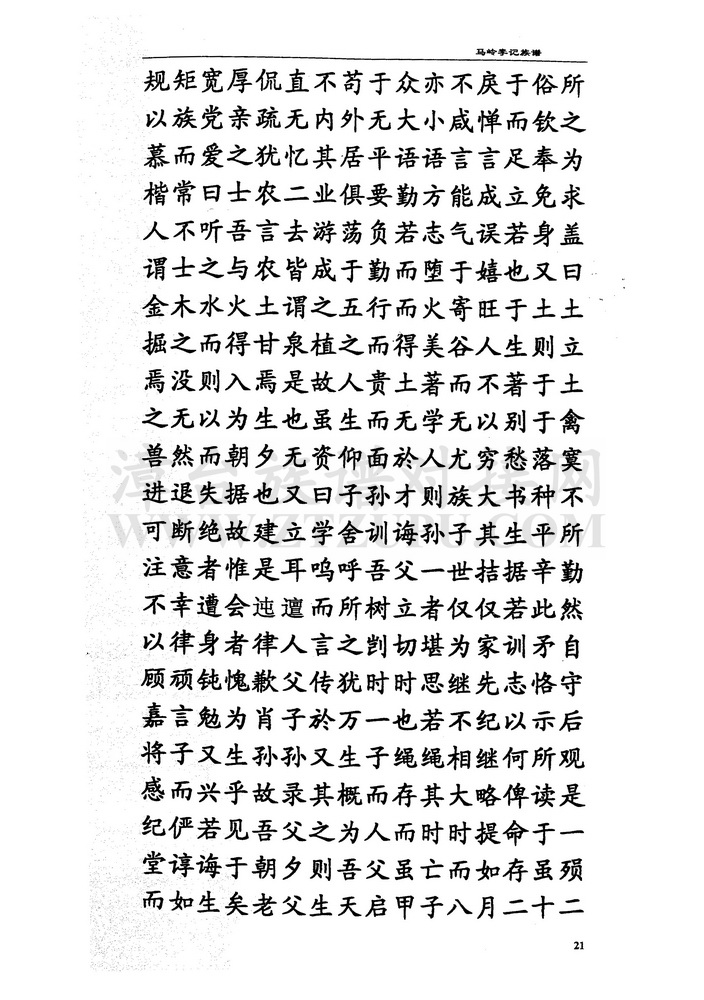 马岭李记族谱
规矩宽厚侃直不苟于众亦不戾于俗所
以族党亲疏无内外无大小咸惮而钦之
慕而爱之犹忆其居平语语言言足奉为
楷常曰士农二业俱要勤方能成立免求
人不听吾言去游荡负若志气误若身盖
谓士之与农皆成于勤而堕于嬉也又曰
金木水火土谓之五行而火寄旺于土土
掘之而得甘泉植之而得美谷人生则立
焉没则入焉是故人贵土著而不著于土
之无以为生也虽生而无学无以别于禽
兽然而朝夕无资仰面於人尤穷愁落寞
进退失据也又曰子孙才则族大书种不
可断绝故建立学舍训诲孙子其生平所
注意者惟是耳呜呼吾父一世拮据辛勤
不幸遭会迍邅而所树立者仅仅若此然
以律身者律人言之剀切堪为家训矛自
顾顽钝愧歉父传犹时时思继先志恪守
嘉言勉为肖子於万一也若不纪以示后
将子又生孙孙又生子绳绳相继何所观
感而兴乎故录其概而存其大略俾读是
纪俨若见吾父之为人而时时提命于一
堂谆诲于朝夕则吾父虽亡而如存虽殒
而如生矣老父生天启甲子八月二十二
漳台族谱对接网
WWW.ZTZUPU.COM
21